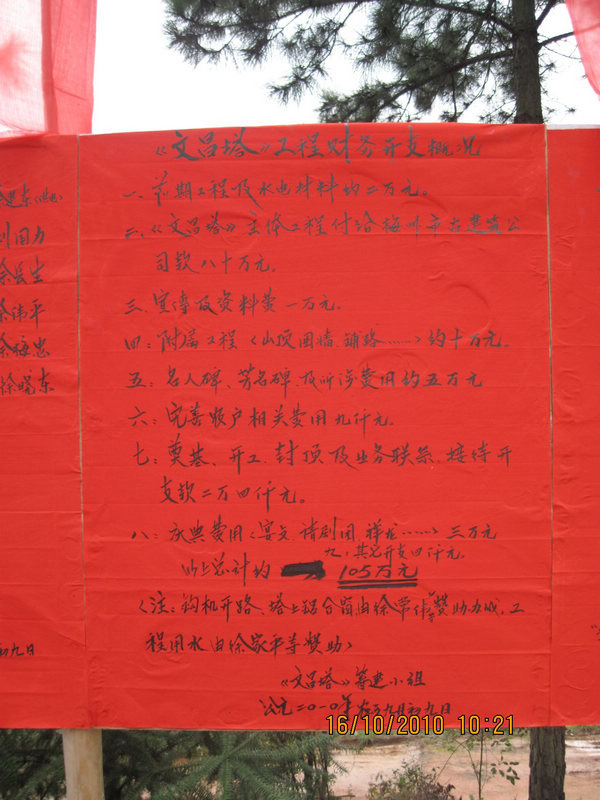 《文昌塔》工程财务开支概况
一、前期工程及水电材料约二万元。
二、《文昌塔》主体工程付给梅州市古建筑公
司款八十万元。
三、宣传及资料费一万元。
四:附属工程(山顶围墙、铺路……)约十万元。
五:名人碑、芳名碑及所涉费用约五万元
六:完善账户相关费用九仟元。
七:奠基、开工、封顶及业务联系、接待开
支款二万四仟元。
八:庆典费用(宴会、请剧团、祥龙……)三万元
九:其它开支四仟元。
以上总计约 105万元
(注:钩机开路、塔上铝合窗由徐常伟等赞助力成、工
程用水由徐家平等赞助)
《文昌塔》筹建小组
公元二〇一〇年农历九月初九日
刘国力
徐伟平
徐梅忠
徐晓东
初九日
16/10/2010 10:21